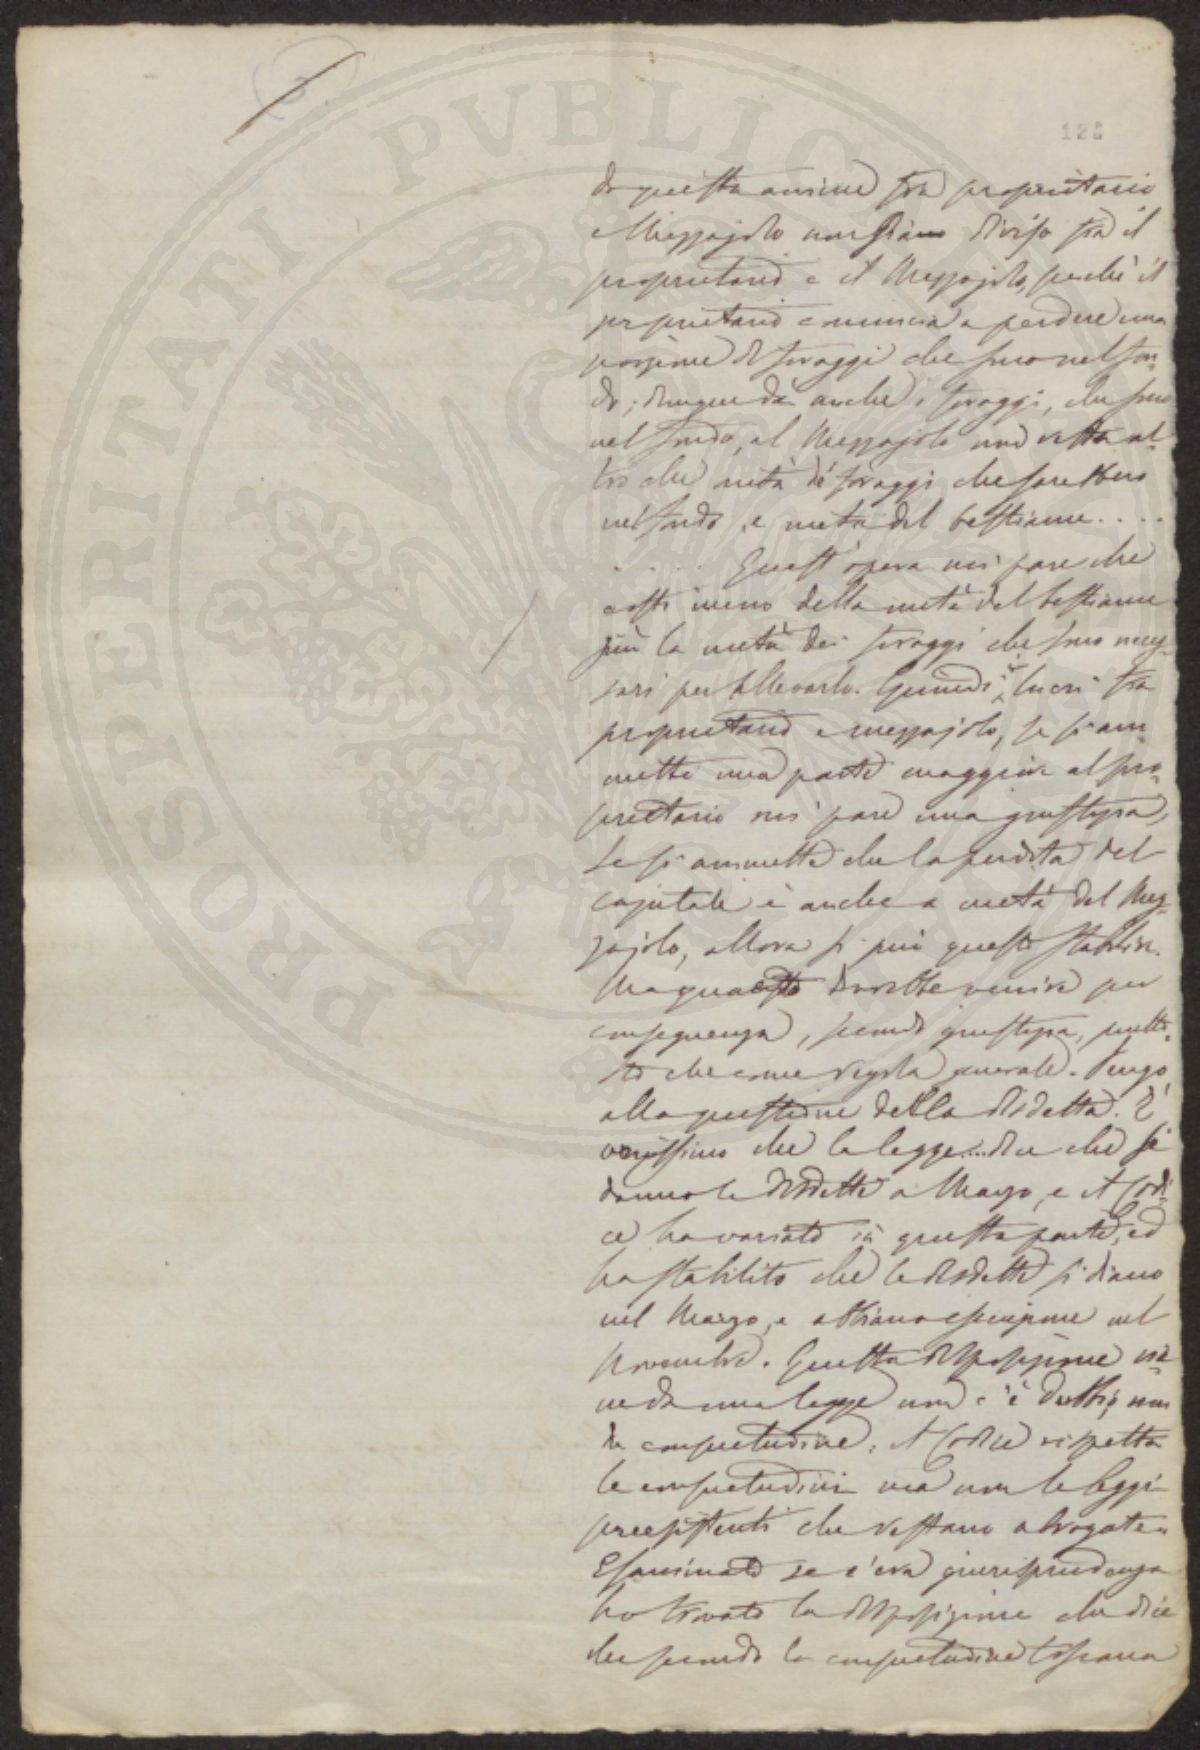 da questa unione tra proprietario
e Mezzajolo non siano divise tra il
proprietario e il Mezzajolo, perchè il
proprietario comincia a perdere una
porzione di foraggi che sono nel fon-
do; dunque dà anche i foraggi, che sono
nel fondo, al Mezzajolo non resta al-
tro che metà de' foraggi che sarebbero
nel fondo, e metà del bestiame . . . .
. . . . . Quest'opera mi pare che
costi meno della metà del bestiame
più la metà dei foraggi che sono neces-
sari per allevarlo. Quindi i lucri tra
proprietario e mezzajolo, se si am-
mette una parte maggiore al pro-
prietario mi pare una giustizia,
se si ammette che la perdita del
capitale è anche a metà del Mez-
zajolo, allora si può questo stabilire.
Ma questo dovrebbe venire per
conseguenza, secondo giustizia, piutto-
sto che come regola generale. Vengo
alla questione della disdetta. È
verissimo che la legge .... dice che si
danno le disdette a Marzo, e il Codi-
ce ha variato in questa parte, ed
ha stabilito che le disdette si diano
nel Marzo, e abbiano esecuzione nel
Novembre. Questa disposizione vie-
ne da una legge non c'è dubbio, non
da consuetudine; il Codice rispetta
le consuetudini ma non le leggi
preesistenti che restano abrogate.
Esaminato se c'era giurisprudenza
ho trovato la disposizione che dice
che secondo la consuetudine toscana
PROSPERITATI PVBLICAE